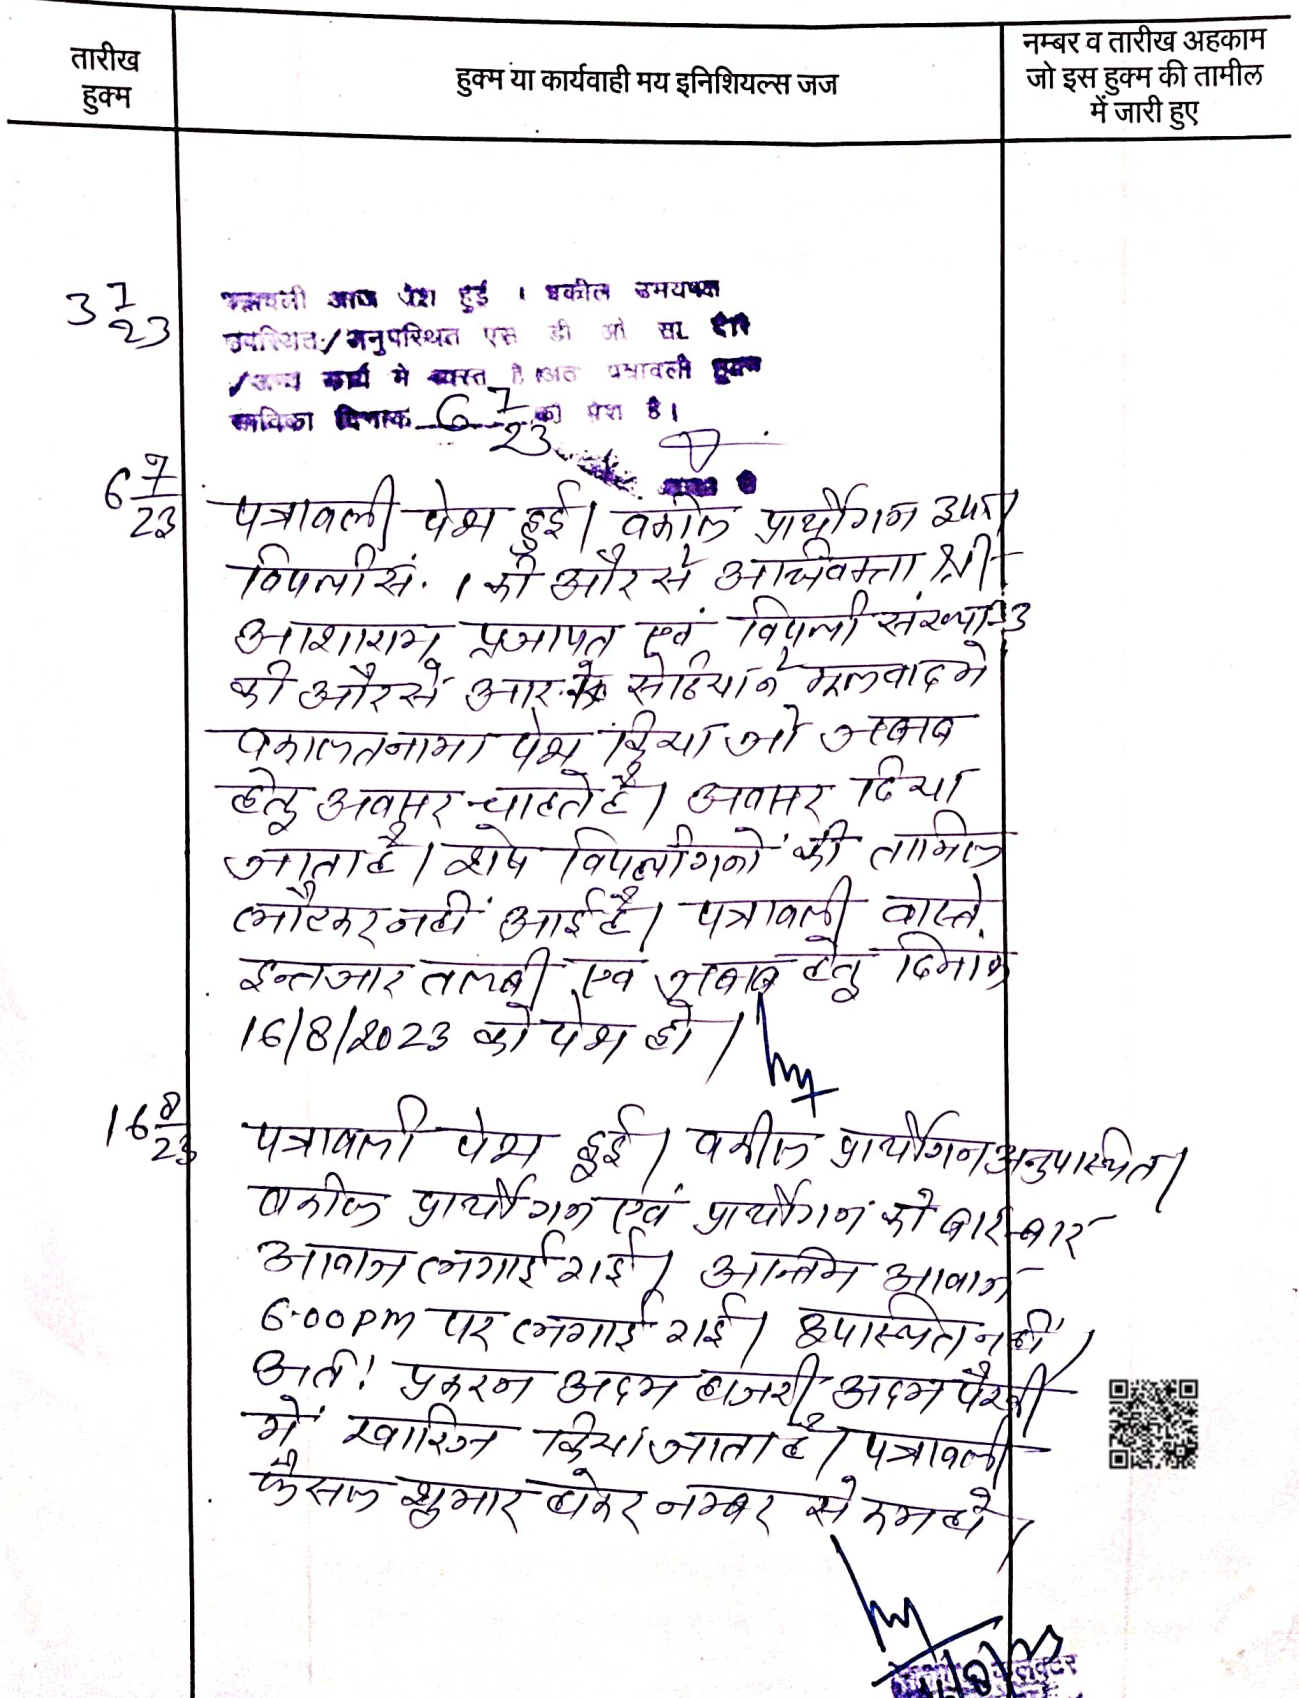 तारीख
हुक्म
हुक्म या कार्यवाही मय इनिशियल्स जज
नम्बर व तारीख अहकाम
जो इस हुक्म की तामील
में जारी हुए
3 7/23
पत्रावली आज पेश हुई । वकील उभयपक्ष
उपस्थित/अनुपस्थित एस डी ओ सा. दौरे
/अन्य कार्य मे व्यस्त है अतः पत्रावली हुक्म
साविका दिनांक 6 7/23 को पेश हो।
6 7/23
पत्रावली पेश हुई। वकील प्रार्थीगन उप.।
विपक्षी सं. 1 की और से अधिवक्ता श्री
आशाराम प्रजापत एवं विपक्षी संख्या 3
की और से आर.के सोढियाने मूलवाद मे
वकालतनामा पेश किया जो जवाब
हेतु अवसर चाहते है। अवसर दिया
जाता है। शेष विपक्षीगनो की तामिल
लौटकर नहीं आई है। पत्रावली वास्ते
इन्तजार तलबी एवं जवाब हेतु दिनांक
16/8/2023 को पेश हो।
16 8/23
पत्रावली पेश हुई। वकील प्रार्थीगन अनुपस्थित।
वकील प्रार्थीगन एवं प्रार्थीगन को बार-बार
आवाज लगाई गई। अन्तिम आवाज
6:00 PM पर लगाई गई। उपस्थित नहीं।
अतः प्रकरन अदम हाजरी अदम पैरवी
में खारिज किया जाता है। पत्रावली
फैसल शुमार होकर नम्बर से कम हो।